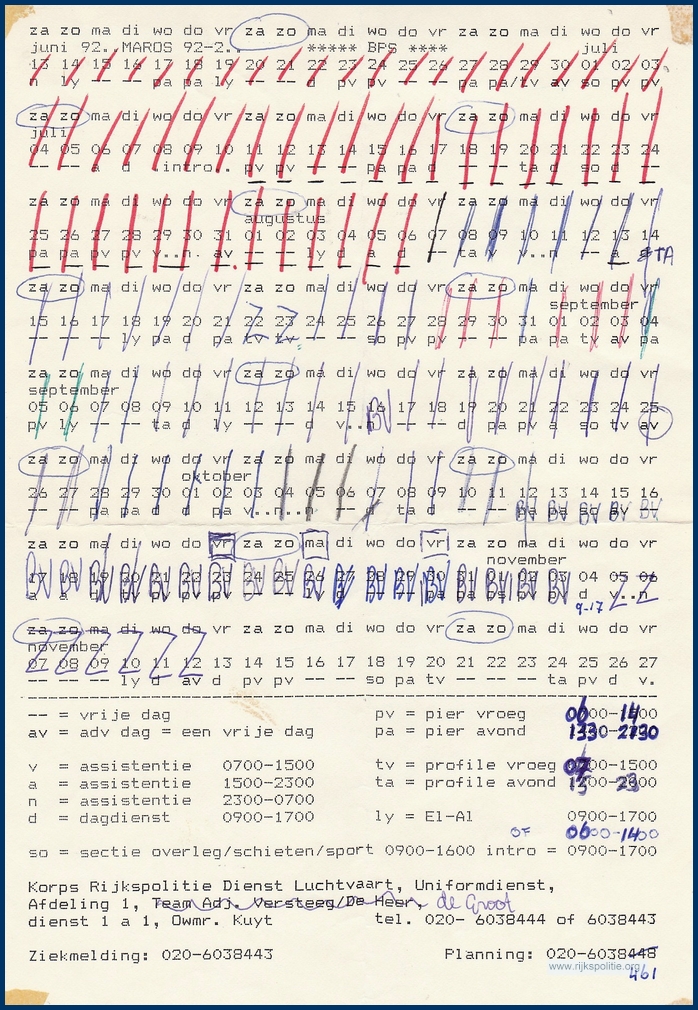 za zo ma di wo do vr za zo ma di wo do vr za zo ma di wo do vr
juni 92..MAROS 92-2.. ***** BPS **** juli
13 14 15 16 17 18 19 20 21 22 23 24 25 26 27 28 29 30 01 02 03
n ly -- -- pa pa ly -- -- d d pv pv -- -- pa pa/tv av so pv pv
za zo ma di wo do vr za zo ma di wo do vr za zo ma di wo do vr
juli
04 05 06 07 08 09 10 11 12 13 14 15 16 17 18 19 20 21 22 23 24
-- -- a d intro.. pv pv -- -- pa pa d -- -- ta d so d --
za zo ma di wo do vr za zo ma di wo do vr za zo ma di wo do vr
augustus
25 26 27 28 29 30 31 01 02 03 04 05 06 07 08 09 10 11 12 13 14
pa pa pv pv v..n. av -- -- ly d a d -- -- ta v v..n -- a
TA
za zo ma di wo do vr za zo ma di wo do vr za zo ma di wo do vr
september
15 16 17 18 19 20 21 22 23 24 25 26 27 28 29 30 31 01 02 03 04
-- -- -- ly pa d pa tv tv -- -- so pv pv -- -- pa pa tv av pa
za zo ma di wo do vr za zo ma di wo do vr za zo ma di wo do vr
september
05 06 07 08 09 10 11 12 13 14 15 16 17 18 19 20 21 22 23 24 25
pv ly -- -- ta d ly -- -- d v..n -- -- d pa pv a so tv av
BV
za zo ma di wo do vr za zo ma di wo do vr za zo ma di wo do vr
oktober
26 27 28 29 30 01 02 03 04 05 06 07 08 09 10 11 12 13 14 15 16
-- -- -- pa pv d pa v..n..n -- -- d ta d -- --
BV BV BV BV BV
za zo ma di wo do vr za zo ma di wo do vr za zo ma di wo do vr
november
17 18 19 20 21 22 23 24 25 26 27 28 29 30 31 01 02 03 04 05 06
BV BV BV BV BV BV BV BV BV BV BV BV BV BV BV BV BV BV d v..n
9-17
za zo ma di wo do vr za zo ma di wo do vr za zo ma di wo do vr
november
07 08 09 10 11 12 13 14 15 16 17 18 19 20 21 22 23 24 25 26 27
-- -- -- ly d av d pv pv -- -- so pa tv -- -- -- ta pv d v.
-- = vrije dag pv = pier vroeg 06 00-14 00
av = adv dag = een vrije dag pa = pier avond 1330-2130
v = assistentie 0700-1500 tv = profile vroeg 07 00-1500
a = assistentie 1500-2300 ta = profile avond
n = assistentie 2300-0700
d = dagdienst 0900-1700 ly = El-Al 0900-1700
OF 0600-1400
so = sectie overleg/schieten/sport 0900-1600 intro = 0900-1700
Korps Rijkspolitie Dienst Luchtvaart, Uniformdienst,
Afdeling 1, Team Adj. Versteeg/De Heer, de Groot
dienst 1 a 1, Owmr. Kuyt tel. 020- 6038444 of 6038443
Ziekmelding: 020-6038443 Planning: 020-6038448
www.rijkspolitie.org
461